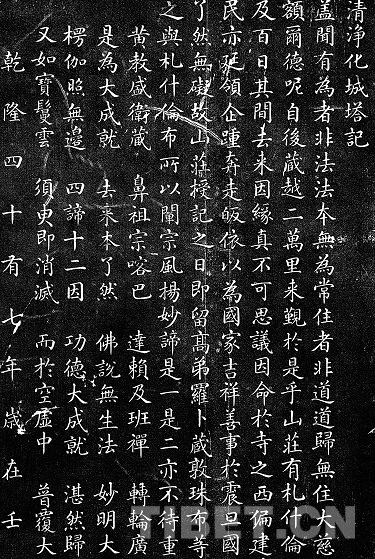 清淨化城塔記
蓋聞有為者非法法本無為常住者非道道歸無住大慈
額爾德呢自後藏越二萬里来覲於是乎山莊有札什倫
及百日其間去来因緣真不可思議因命於寺之西偏建
民亦延領企踵奔走皈依以為國家吉祥善事於震旦國
了然無礙故山莊授記之日即留高弟羅卜藏敦珠布等
之與札什倫布所以闡宗風揚妙諦是一是二亦不待重
黃教盛衛藏 鼻祖宗喀巴 達賴及班禪 轉輪廣
是為大成就 去来本了然 佛說無生法 妙明大
楞伽照無邊 四諦十二因 功德大成就 湛然歸
又如寶鬘雲 須臾即消滅 而於空虛中 普覆大
乾隆四十有七年歲在壬
TIBET.CN